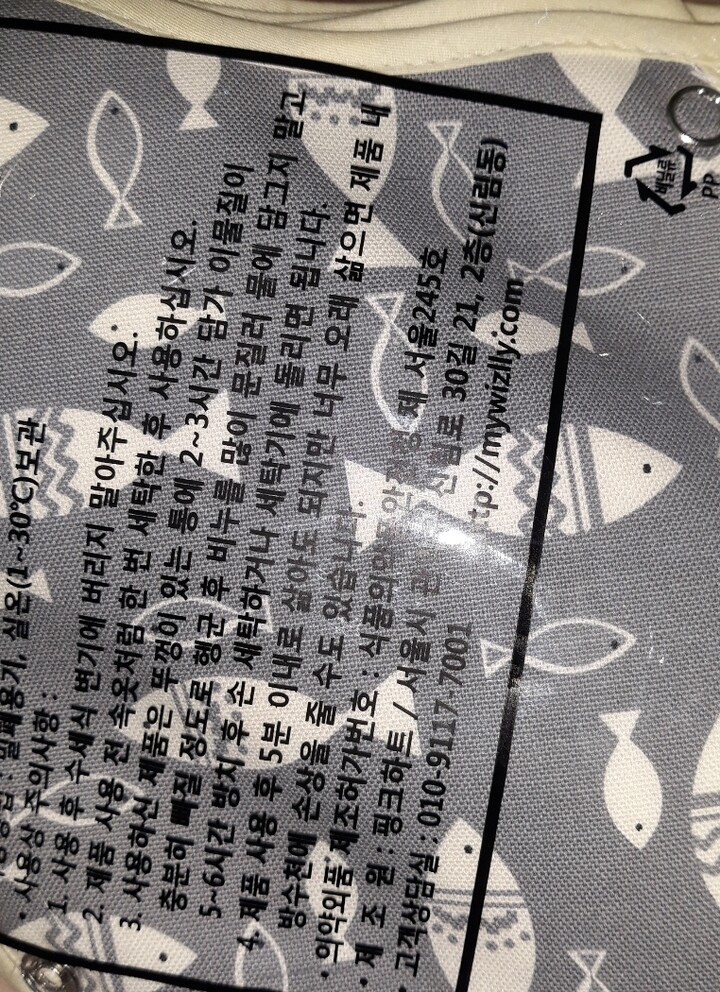 밀폐용기, 실온(1~30℃)보관
· 사용상 주의사항 :
1. 사용 후 수세식 변기에 버리지 말아주십시오.
2. 제품 사용 전 속옷처럼 한 번 세탁한 후 사용하십시오.
3. 사용하신 제품은 뚜껑이 있는 통에 2~3시간 담가 이물질이
충분히 빠질 정도로 헹군 후 비누를 많이 문질러 물에 담그지 말고
5~6시간 방치 후 손 세탁하거나 세탁기에 돌리면 됩니다.
4. 제품 사용 후 5분 이내로 삶아도 되지만 너무 오래 삶으면 제품 내
방수천에 손상을 줄 수도 있습니다.
· 의약외품 제조허가번호 : 제 서울245호
· 제 조 원 : 핑크하트 / 서울시 신림로 30길 21, 2층(신림동)
· 고객상담실 : 010-9117-7001 tp://mywizlly.com
비닐류
PP